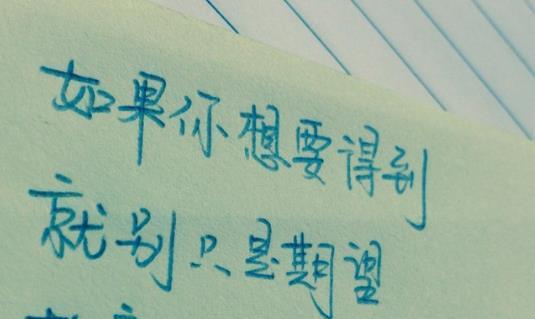 如果你想要得到
就别只是期望